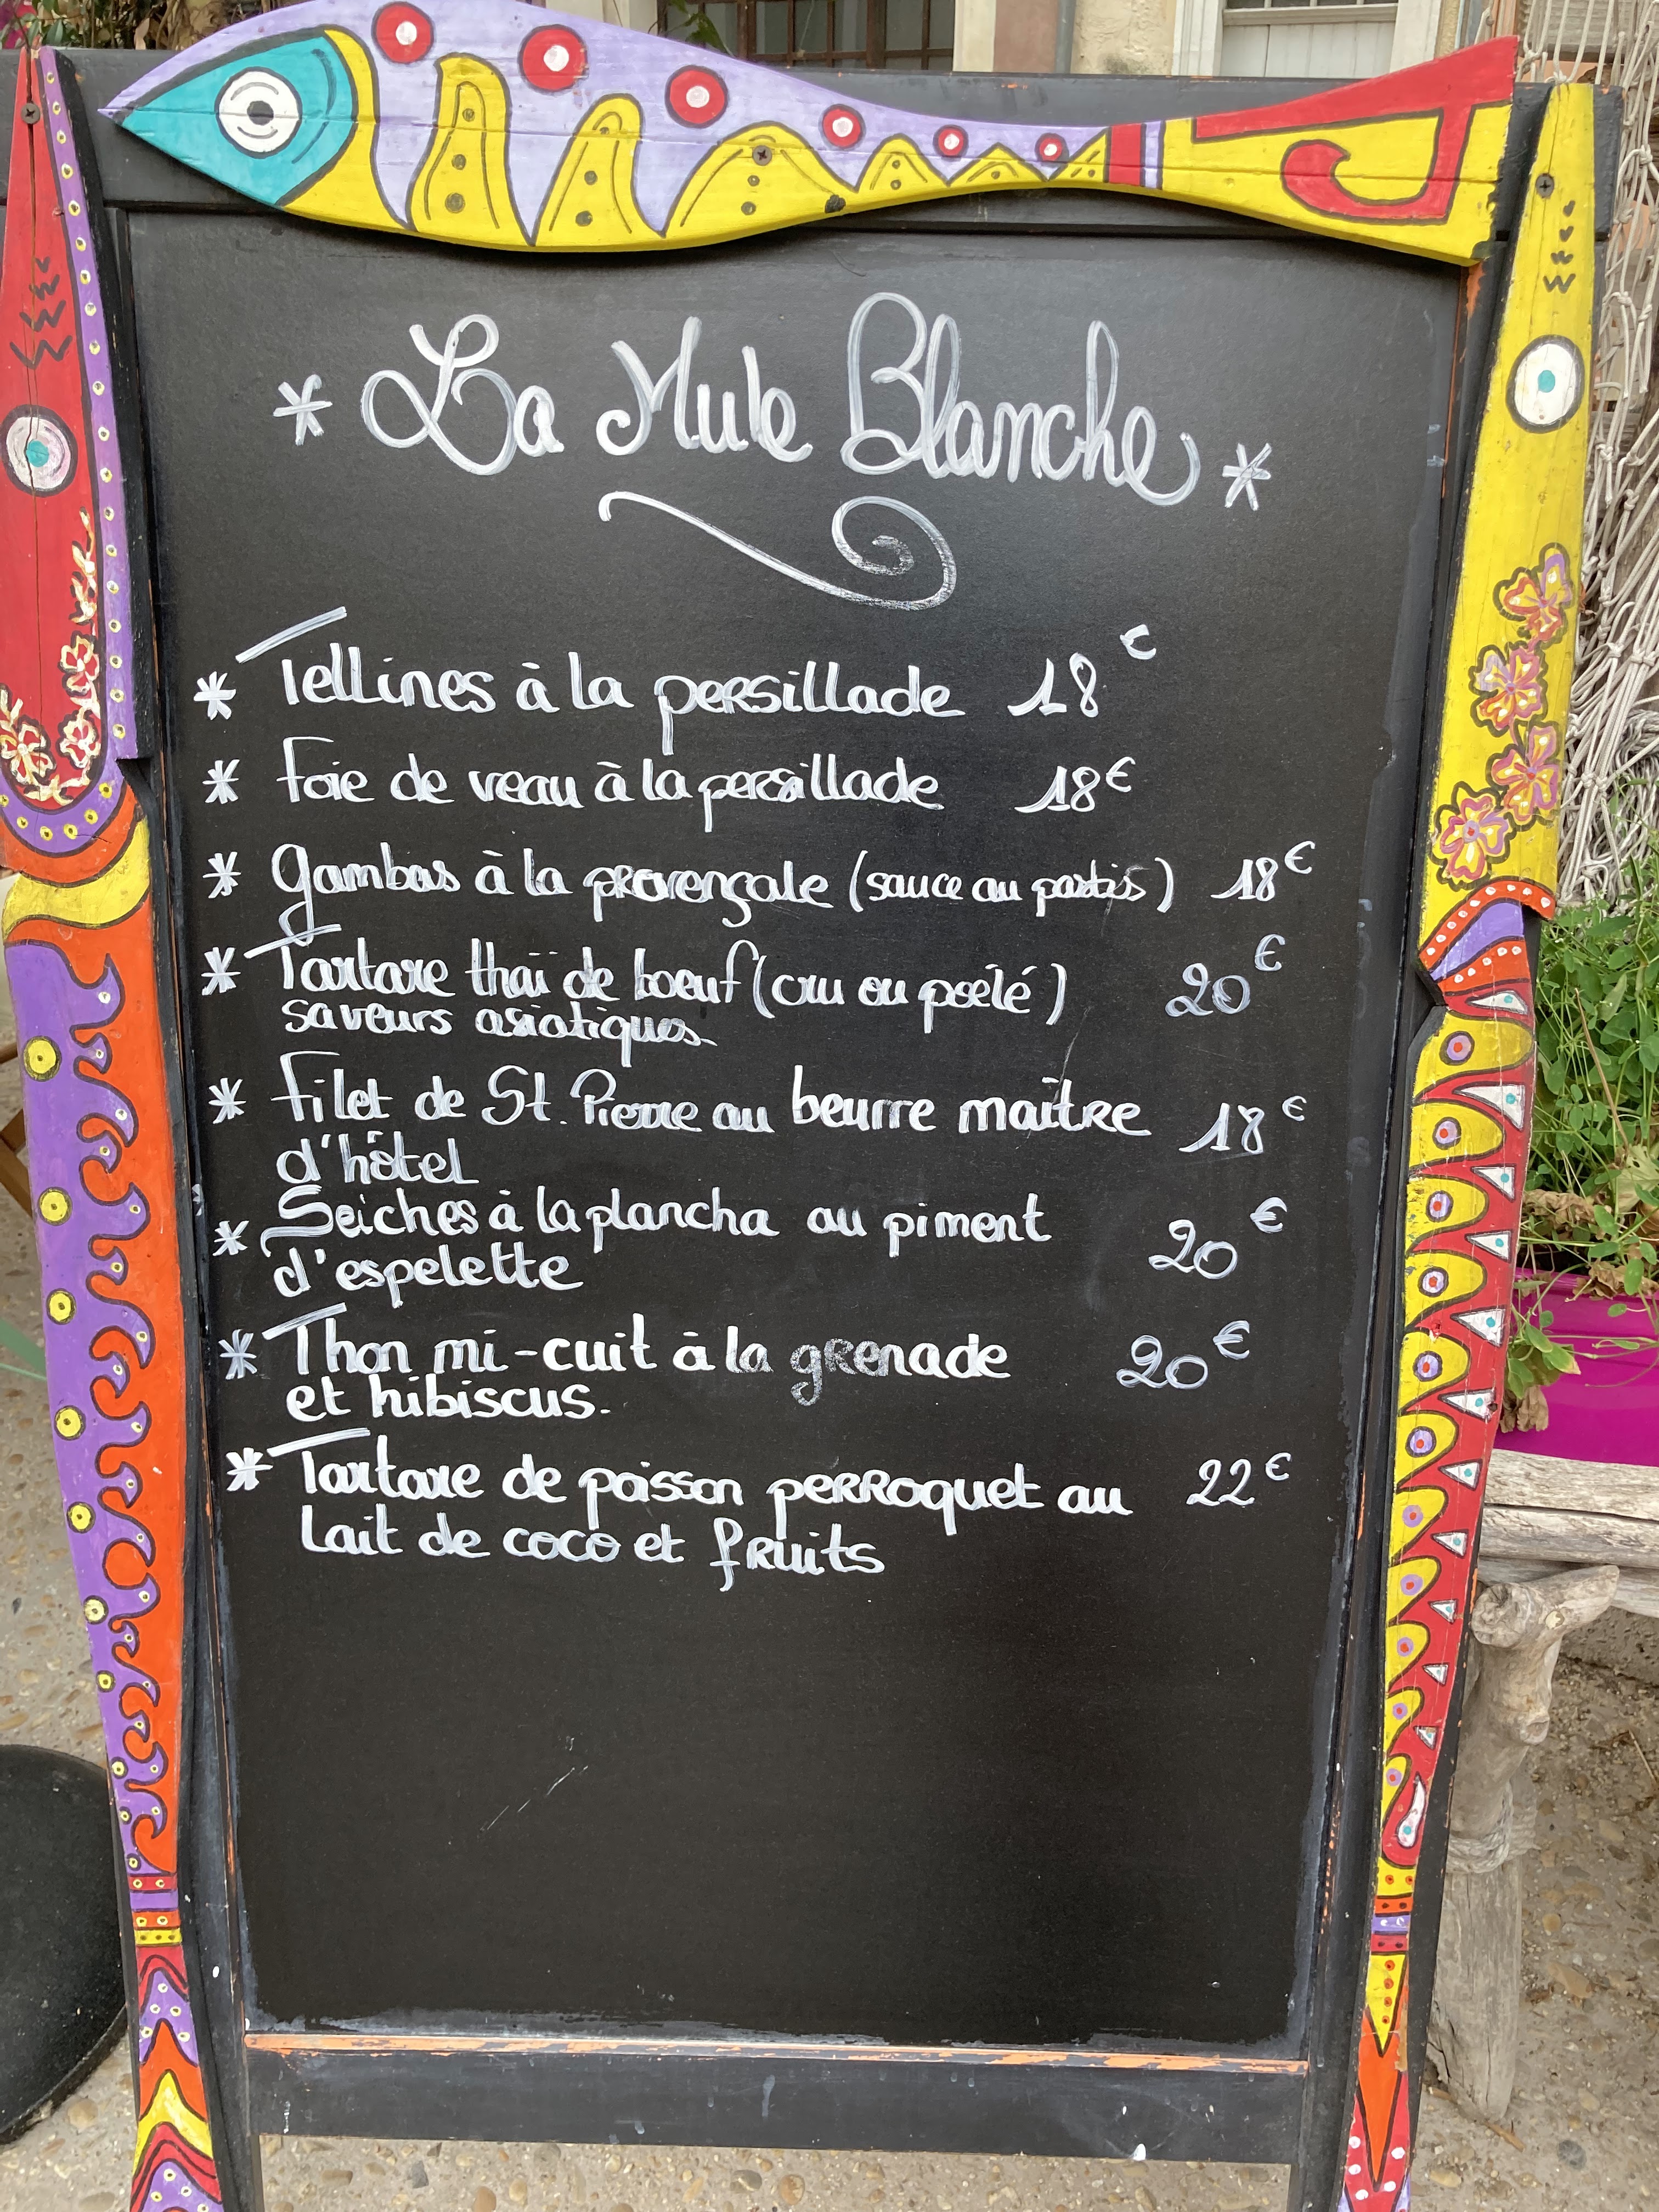 * La Mule Blanche *
* Tellines à la persillade 18€
* Foie de veau à la persillade 18€
* Gambas à la provençale (sauce au pastis) 18€
* Tartare thaï de boeuf (cru ou poêlé) 20€
saveurs asiatiques.
* Filet de St. Pierre au beurre maître 18€
d'hôtel
* Seiches à la plancha au piment 20€
d'espelette
* Thon mi-cuit à la grenade 20€
et hibiscus.
* Tartare de poisson perroquet au 22€
lait de coco et fruits